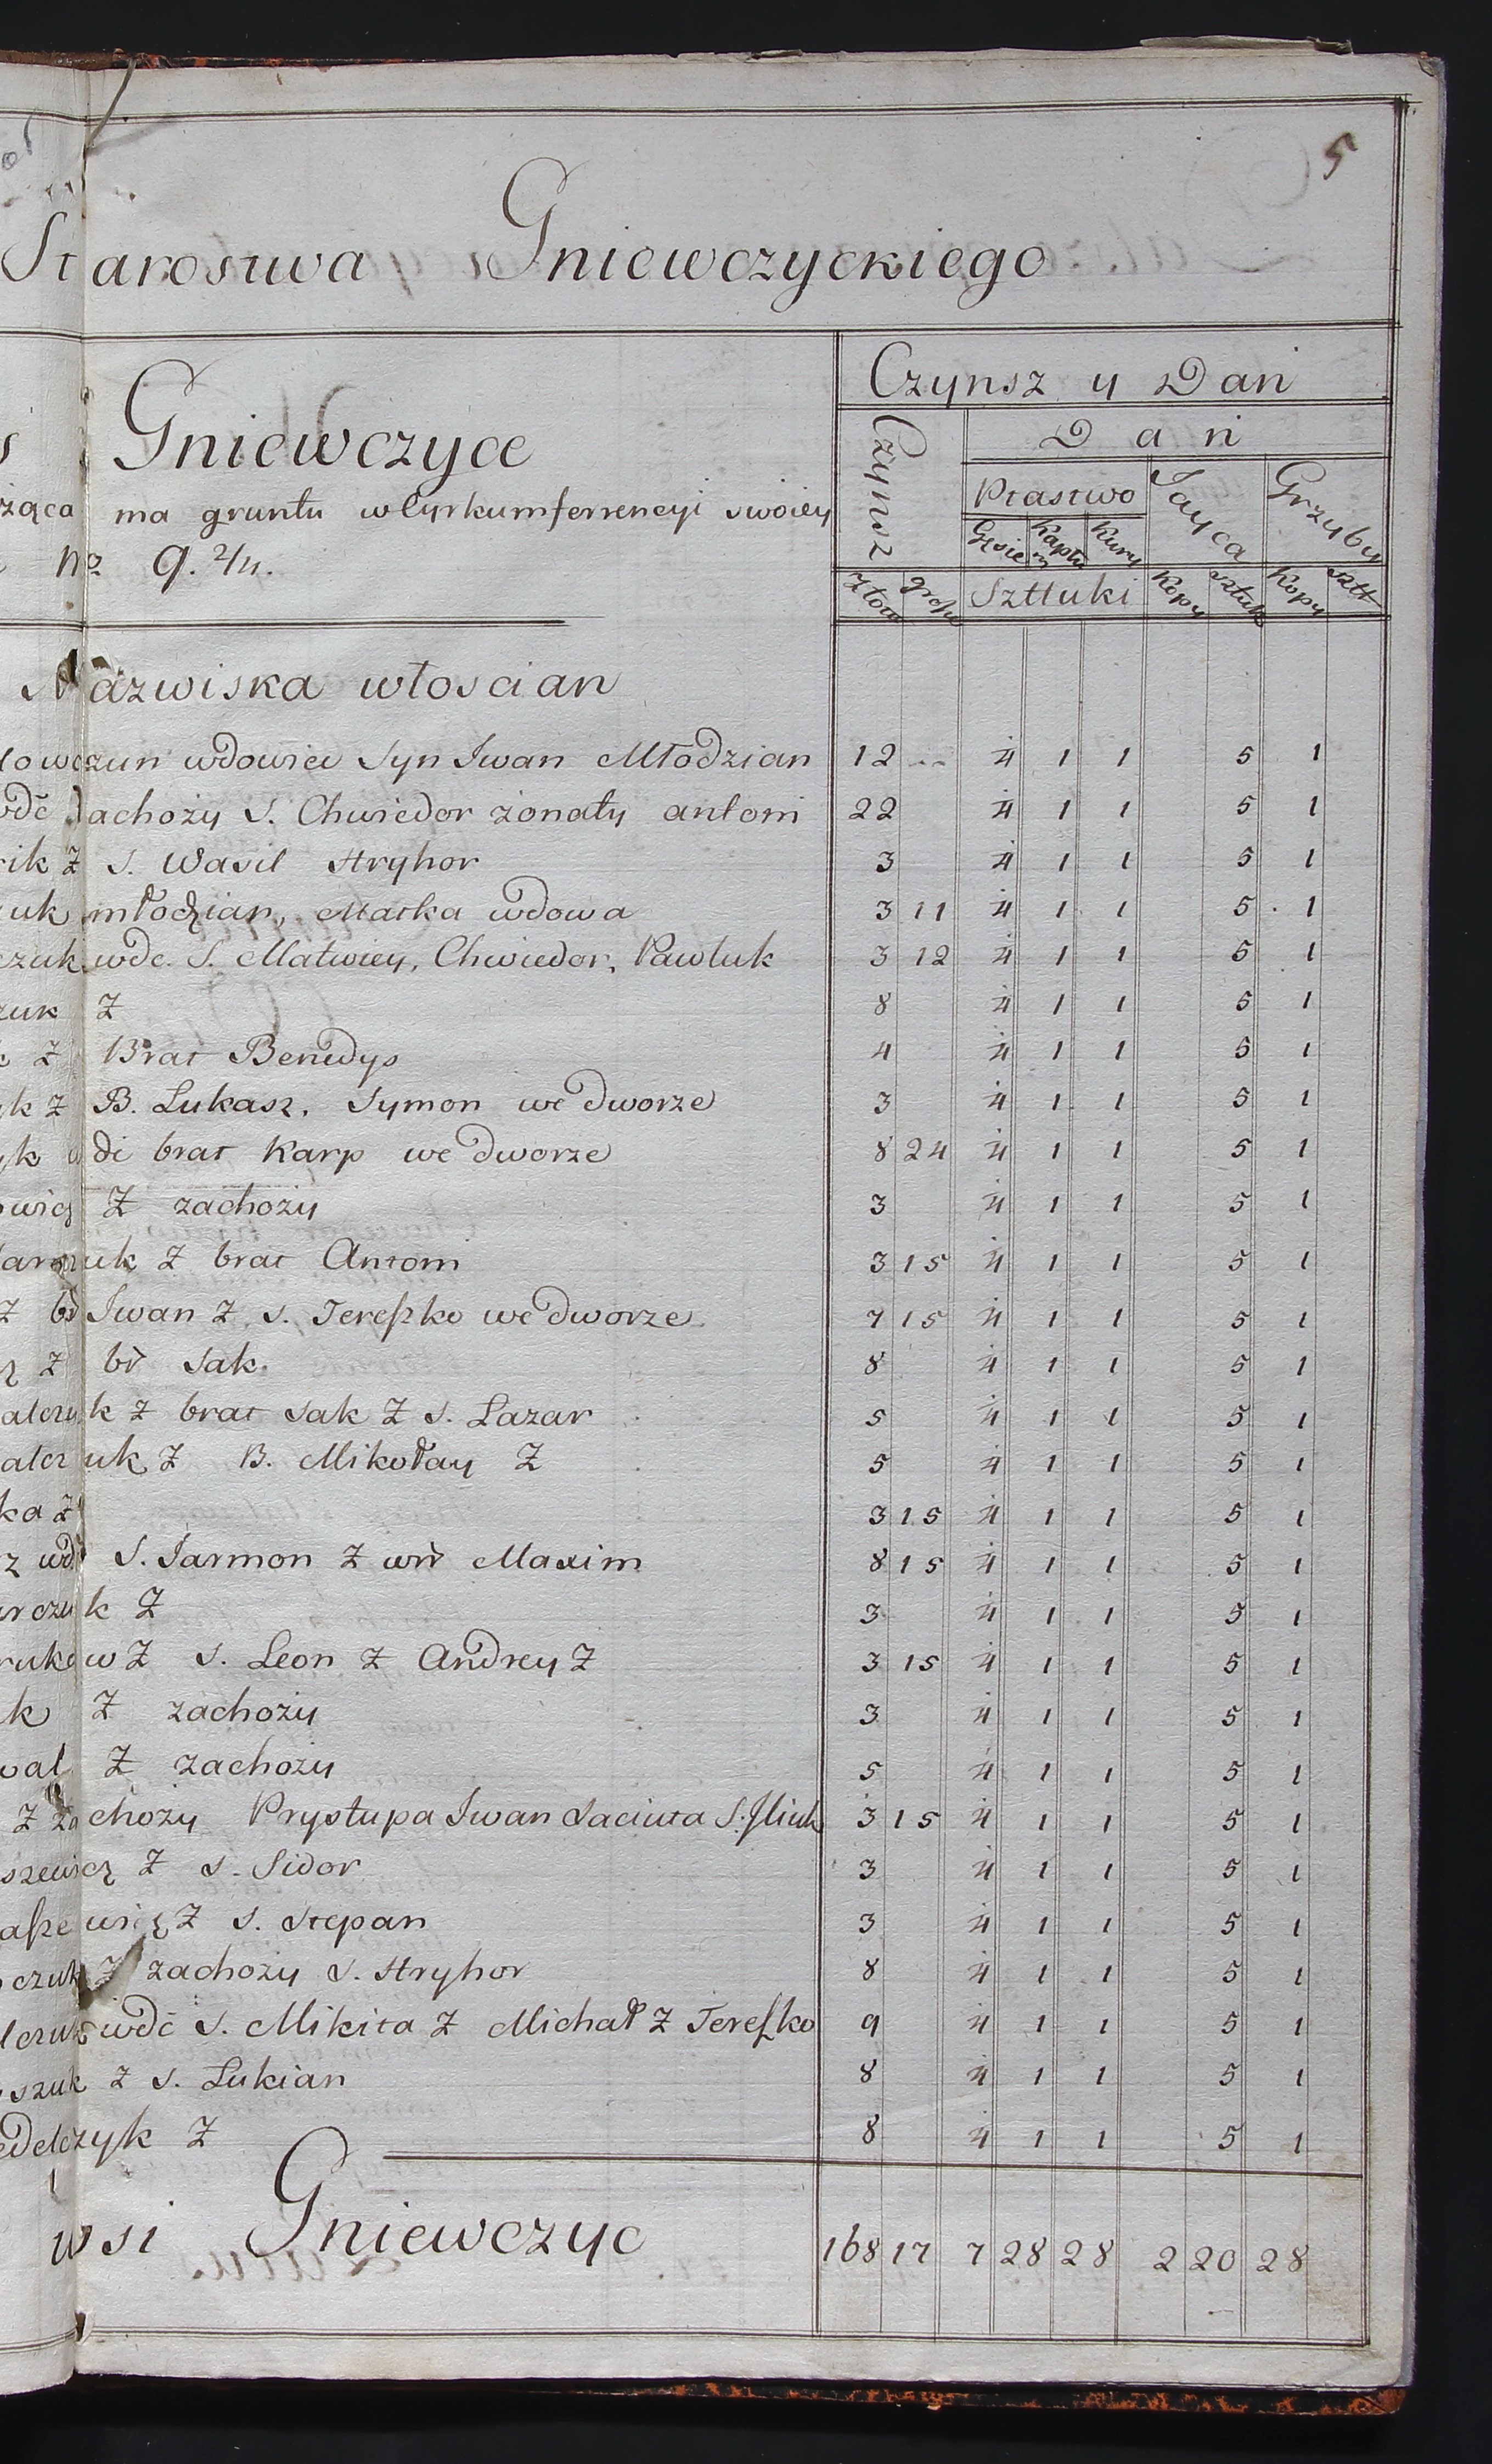 5
Starostwa Gniewczyckiego
Gniewczyce
żąca ma gruntu w Cyrkumferrencyi swoiey
Nz 9. 2/4.
Nazwiska włoscian
Czynsz y Dań
Czynsz
Dań
Ptastwo Jayca Grzyby
Gęsie Kapło Kury
Złotе grosz Szttuki Kopy sztuk Kopy sztt
łowczun wdowiec Syn Iwan Młodzian 12 -- 4 1 1 5 1
wdć Zachoży S. Chwiedor żonaty antoni 22 4 1 1 5 1
rik Z S. Wasil Hryhor 3 4 1 1 5 1
uk młodzian, Matka wdowa 3 11 4 1 1 5 1
czuk wdc. S. Matwiey, Chwiedor, Pawluk 3 12 4 1 1 5 1
zuk Z 8 4 1 1 5 1
k Z Brat Benedys 4 4 1 1 5 1
yk Z B. Lukasz, Symon we Dworze 3 4 1 1 5 1
yk di brat Karp we Dworze 8 24 4 1 1 5 1
owicz Z zachoży 3 4 1 1 5 1
uk Z brat Antoni 3 15 4 1 1 5 1
Z br Iwan Z S. Tereszko we Dworze 7 15 4 1 1 5 1
z Z br Sak 8 4 1 1 5 1
alczuk Z brat Sak Z S. Lazar 5 4 1 1 5 1
alczuk Z B. Mikołay Z 5 4 1 1 5 1
ka Z 3 15 4 1 1 5 1
z wd S. Jarmon Z wn Maxim 8 15 4 1 1 5 1
arczuk Z 3 4 1 1 5 1
rukow Z S. Leon Z Andrey Z 3 15 4 1 1 5 1
k Z zachoży 3 4 1 1 5 1
wal Z zachoży 5 4 1 1 5 1
Z Zachoży Prystupa Iwan Saciuta S. Iliuk 3 15 4 1 1 5 1
szewicz Z S. Sidor 3 4 1 1 5 1
aszewicz Z S. Stepan 3 4 1 1 5 1
czuk Z zachoży S. Hryhor 8 4 1 1 5 1
lczuk wdć S. Mikita Z Michał Z Tereszko 9 4 1 1 5 1
szuk Z S. Lukian 8 4 1 1 5 1
edelczyk Z 8 4 1 1 5 1
wsi Gniewczyc 168 17 7 28 28 2 20 28